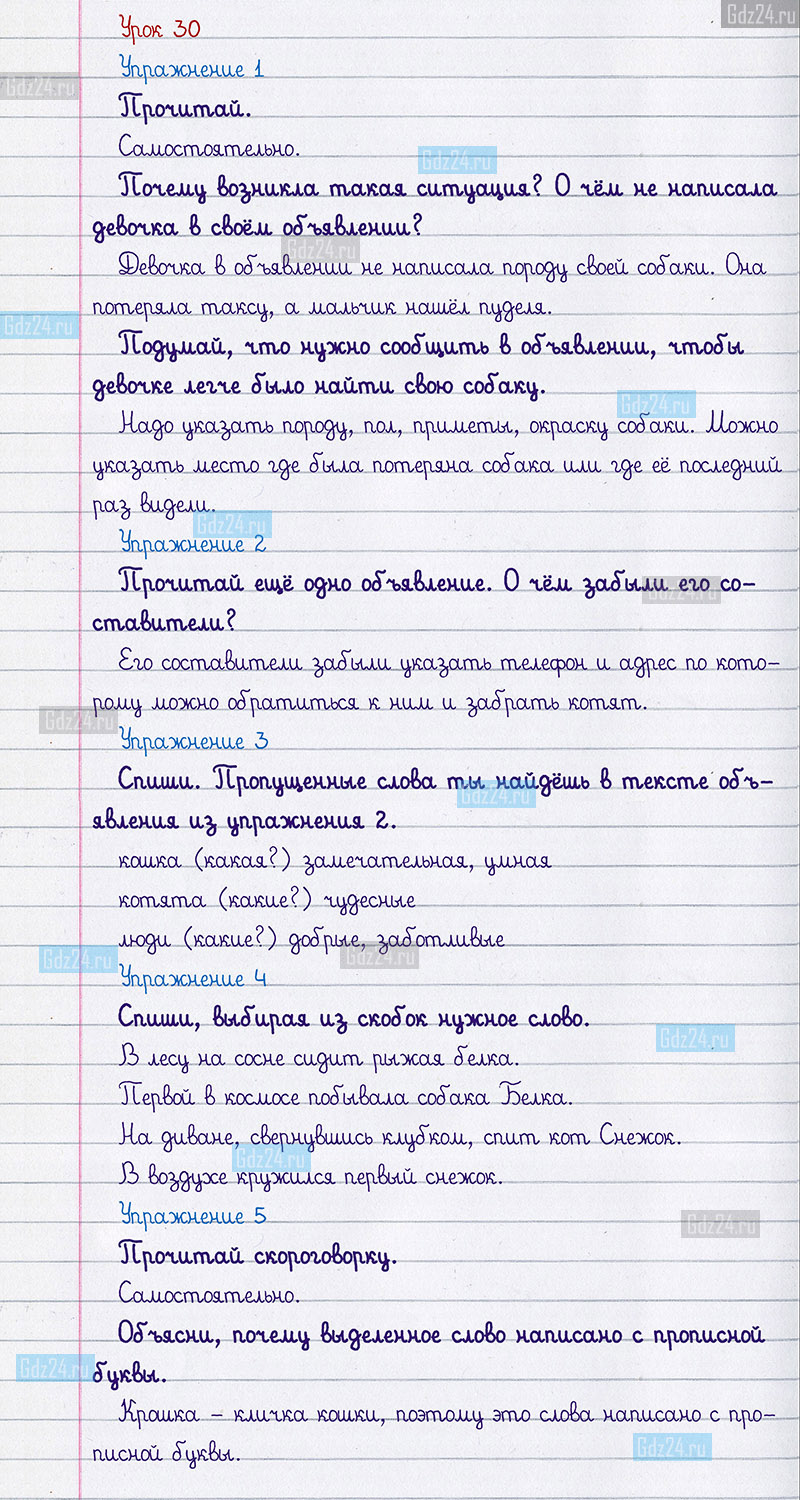 Gdz24.ru
Урок 30
Упражнение 1
Gdz24.ru
Прочитай.
Самостоятельно.
Gdz24.ru
Почему возникла такая ситуация? О чём не написала
девочка в своём объявлении?
Gdz24.ru
Девочка в объявлении не написала породу своей собаки. Она
потеряла таксу, а мальчик нашёл пуделя.
Gdz24.ru
Подумай, что нужно сообщить в объявлении, чтобы
девочке легче было найти свою собаку.
Gdz24.ru
Надо указать породу, пол, приметы, окраску собаки. Можно
указать место где была потеряна собака или где её последний
раз видели.
Gdz24.ru
Упражнение 2
Прочитай ещё одно объявление. О чём забыли его со-
Gdz24.ru
ставители?
Его составители забыли указать телефон и адрес по кото-
рому можно обратиться к ним и забрать котят.
Gdz24.ru
Упражнение 3
Спиши. Пропущенные слова ты найдёшь в тексте объ-
Gdz24.ru
явления из упражнения 2.
кошка (какая?) замечательная, умная
котята (какие?) чудесные
люди (какие?) добрые, заботливые
Gdz24.ru
Gdz24.ru
Упражнение 4
Спиши, выбирая из скобок нужное слово.
Gdz24.ru
В лесу на сосне сидит рыжая белка.
Первой в космосе побывала собака Белка.
На диване, свернувшись клубком, спит кот Снежок.
Gdz24.ru
В воздухе кружился первый снежок.
Упражнение 5
Gdz24.ru
Прочитай скороговорку.
Самостоятельно.
Объясни, почему выделенное слово написано с прописной
Gdz24.ru
буквы.
Крошка – кличка кошки, поэтому это слова написано с про-
Gdz24.ru
писной буквы.